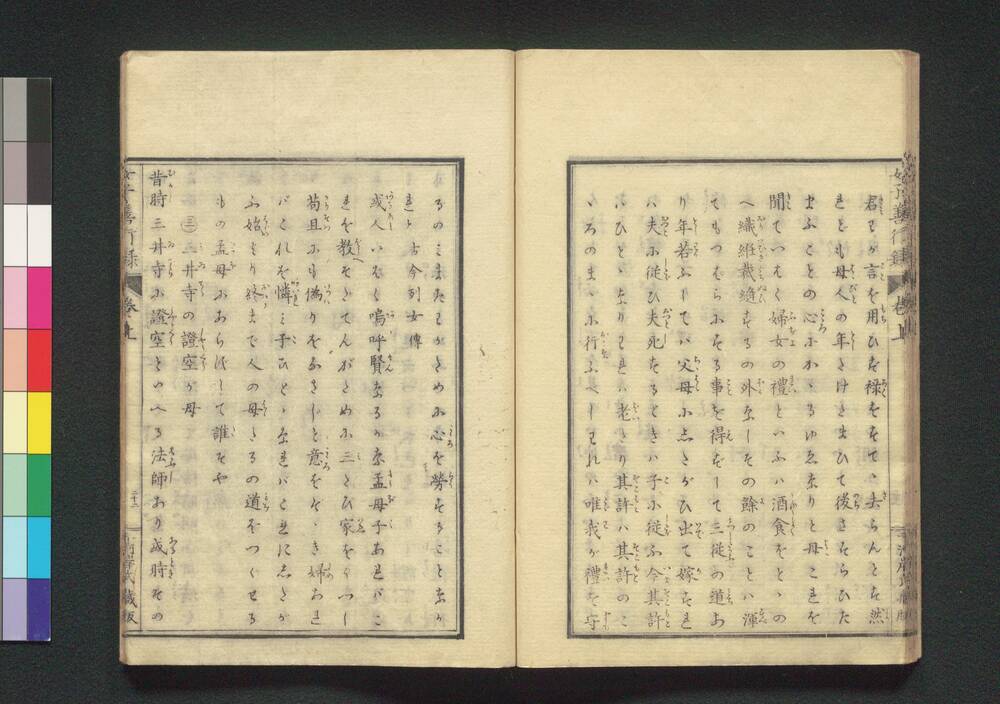 君もが言を用ひを禄をすてゝ去らんとす然
れとも母人の年たけたまひて後さすらひた
まふことの心にかゝるゆゑなりと母これを
聞ていはく婦女の禮といふハ酒食をとゝの
へ織絍裁縫するの外なしその餘のことハ渾
てもつはらにする事を得すして三従の道あ
り年若ふしてハ父母にしたがひ出て嫁すれ
ハ夫に従ひ夫死するときハ子に従ふ今其許
はひとゝなりわれハ老たり其許ハ其許のこ
ころのまゝに行ふべしわれハ唯我が禮を守
るのみまたわがために心を勞することなか
れと 古今列女傳
或人いはく嗚呼賢なるかな孟母子あれバこ
れを教そだてんがために三たび家をうつし
苟且にも僞りをなさじと意をそゝき婦あれ
バこれを憐ミ子ひとゝなれバこれにしたが
ふ始より終まで人の母たるの道をつくせる
もの孟母にあらずして誰そや
㊂三井寺の證空が母
昔時三井寺に證空といへる法師あり或時その
女子善行録 巻上
藏版